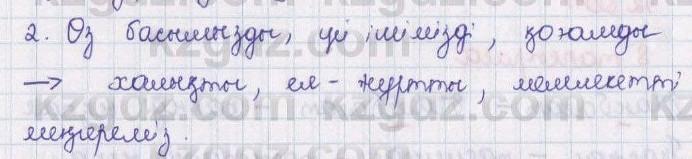 2. Өз басымызды, үй ішімізді, қоғамды
→ халықты, ел-жұртты, мемлекетті
меңгереміз.